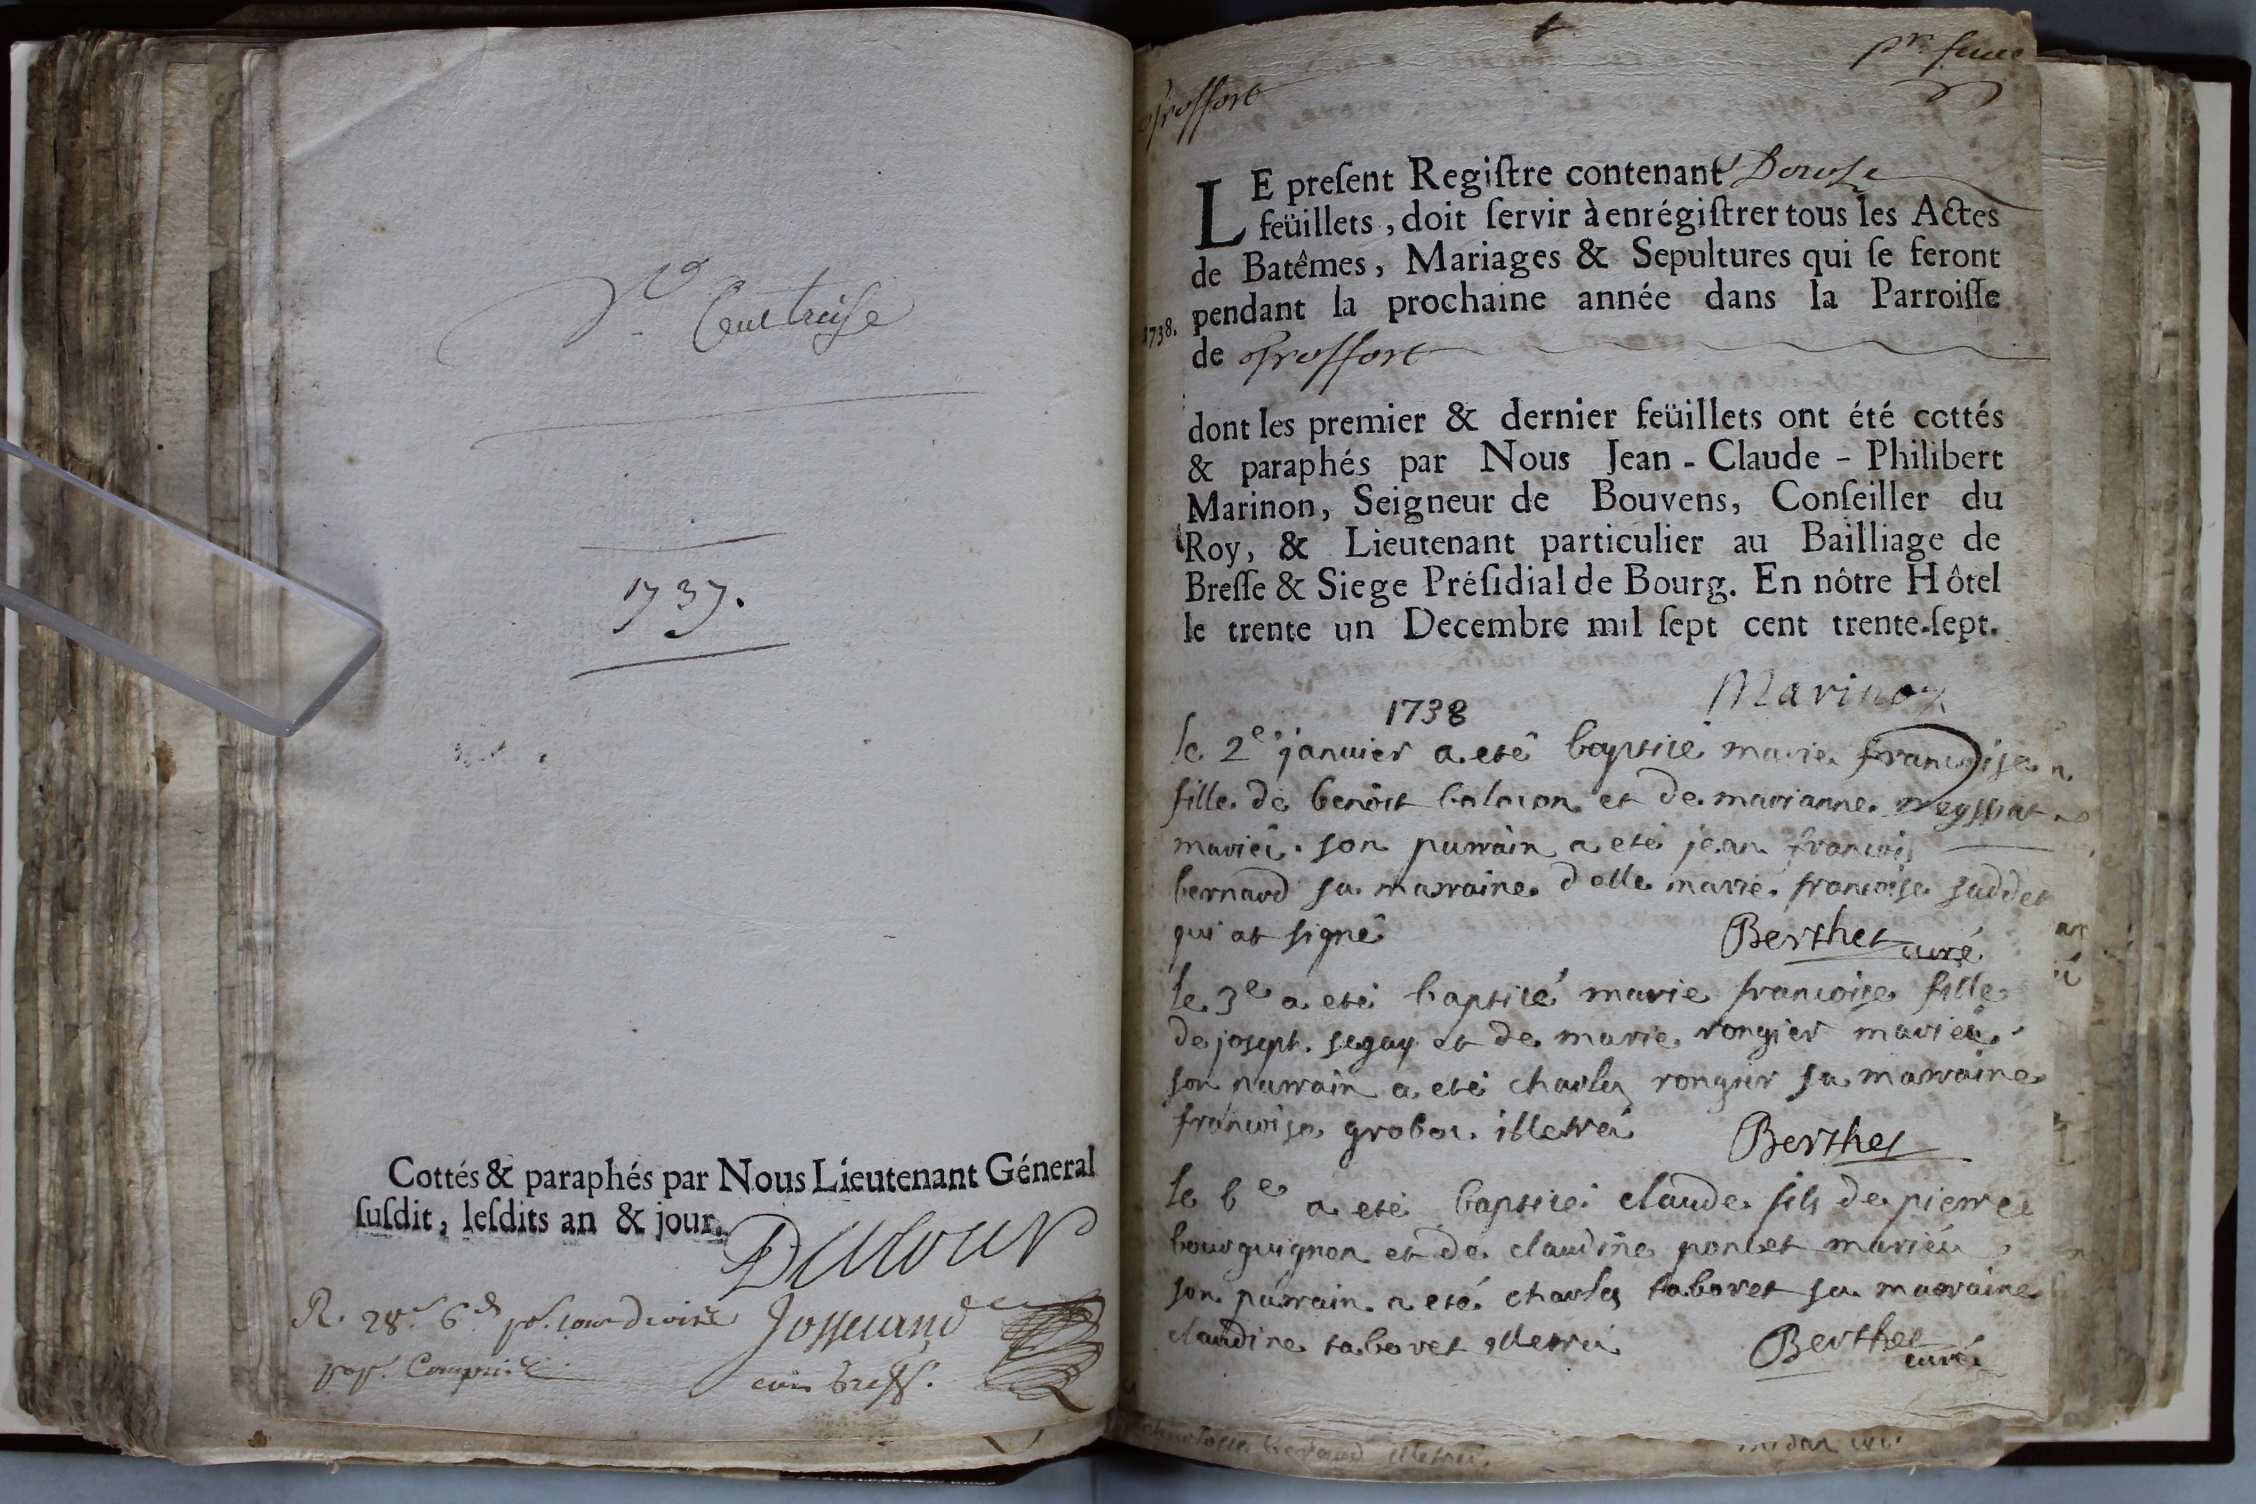 1737.
Cottés & paraphés par Nous Lieutenant Géneral
ſuſdit, leſdits an & jour.
R. 28
Treffort
LE preſent Regiſtre contenant Douze
feüillets, doit ſervir à enrégiſtrer tous les Actes
de Batêmes, Mariages & Sepultures qui ſe feront
1738. pendant la prochaine année dans la Parroiſſe
de Treffort
dont les premier & dernier feüillets ont été cottés
& paraphés par Nous Jean - Claude - Philibert
Marinon, Seigneur de Bouvens, Conſeiller du
Roy, & Lieutenant particulier au Bailliage de
Breſſe & Siege Préſidial de Bourg. En nôtre Hôtel
le trente un Decembre mil ſept cent trente-ſept.
Marinon
1738
le 2e janvier a eté baptisé marie francoise
fille de benoit et de marianne
mariés. son parrain a eté jean francois
bernard sa marraine delle marie francoise
qui at signé Berthet curé
le 3e a eté baptisé marie francoise fille
de joseph segay et de marie rongier mariés.
son parrain a eté charles rongier sa marraine
francoise illetrés Berthet
le 6e a eté baptisé claude fils de pierre
bourguignon et de claudine poncet mariés
son parrain a eté charles taboret sa marraine
claudine taboret illetrés Berthet
curé